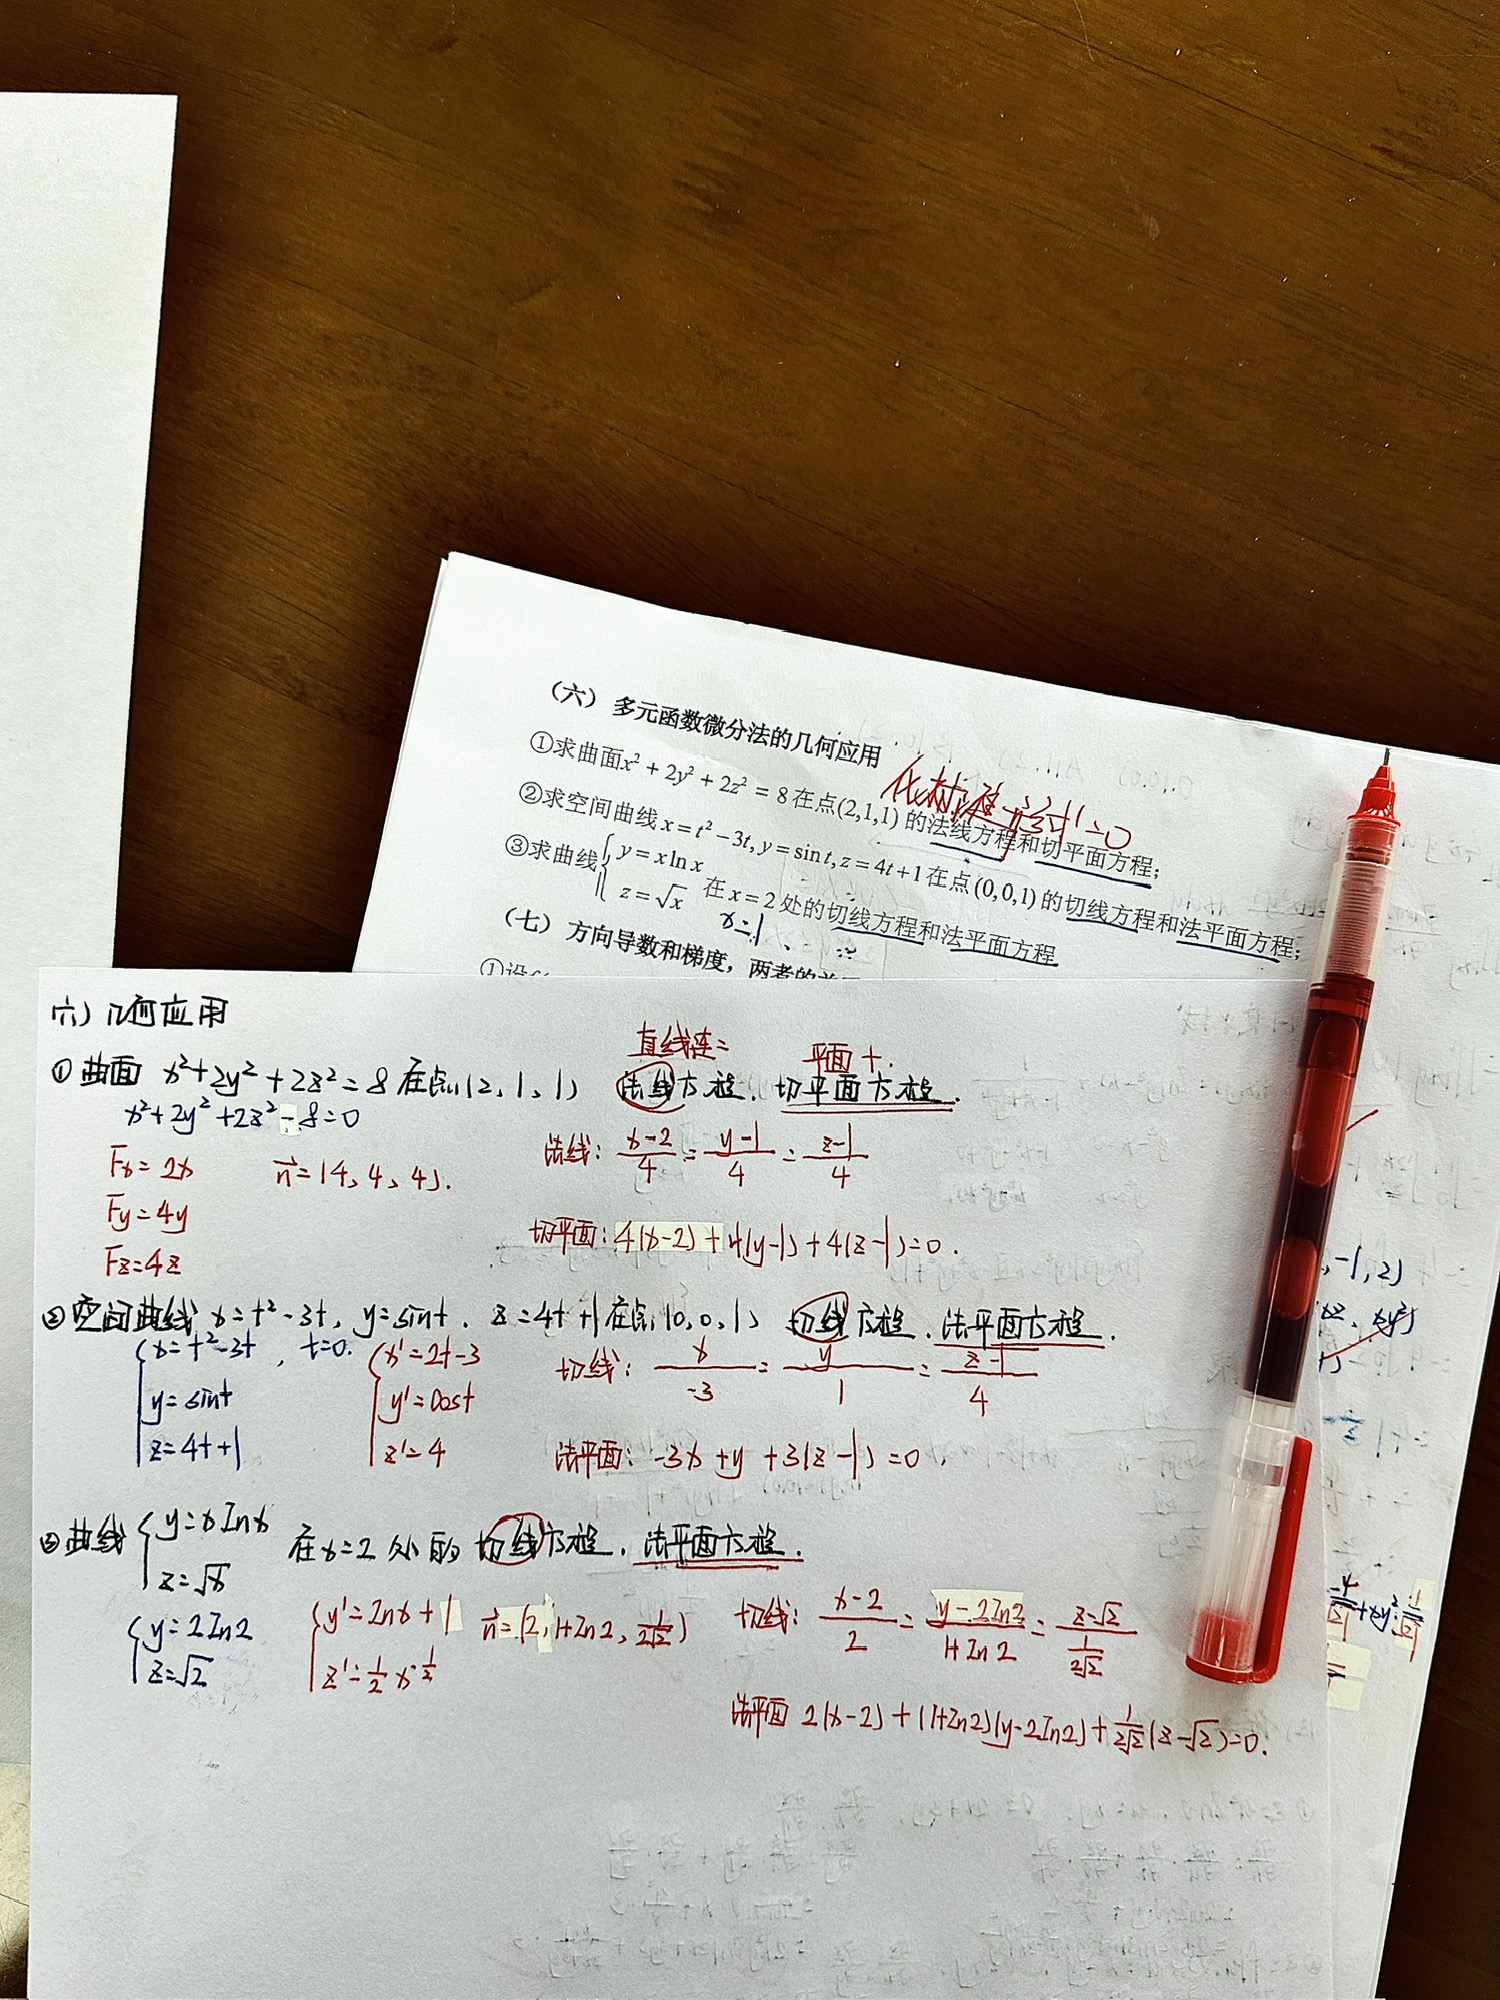 （六） 多元函数微分法的几何应用
①求曲面x² + 2y² + 2z² = 8在点(2,1,1) 的法线方程和切平面方程；
②求空间曲线 x = t² − 3t, y = sin t, z = 4t + 1在点(0,0,1) 的切线方程和法平面方程；
③求曲线{y = x ln x
z = √x 在 x = 2 处的切线方程和法平面方程
x=1
（七） 方向导数和梯度，两者的
①设
六) 几何应用
直线连=
平面+.
① 曲面 x²+2y²+2z²=8 在点(2,1,1) 法线方程、切平面方程.
x²+2y²+2z²-8=0
法线: (x-2)/4 = (y-1)/4 = (z-1)/4
Fx=2x
n⃗=(4,4,4).
Fy=4y
切平面: 4(x-2)+4(y-1)+4(z-1)=0.
Fz=4z
② 空间曲线 x=t²-3t, y=sint, z=4t+1 在点(0,0,1) 切线方程、法平面方程.
{x=t²-3t, t=0.
y=sint
z=4t+1
{x'=2t-3
y'=cost
z'=4
切线: x/-3 = y/1 = (z-1)/4
法平面: -3x+y+3(z-1)=0.
③ 曲线{y=xlnx
z=√x
在x=2处的切线方程、法平面方程.
{y=2ln2
z=√2
{y'=lnx+1
z'=1/2 x^-1/2
n⃗=(2,1+ln2,1/2√2)
切线: (x-2)/2 = (y-2ln2)/(1+ln2) = (z-√2)/(1/2√2)
法平面 2(x-2)+(1+ln2)(y-2ln2)+1/2√2(z-√2)=0.
,-1,2)